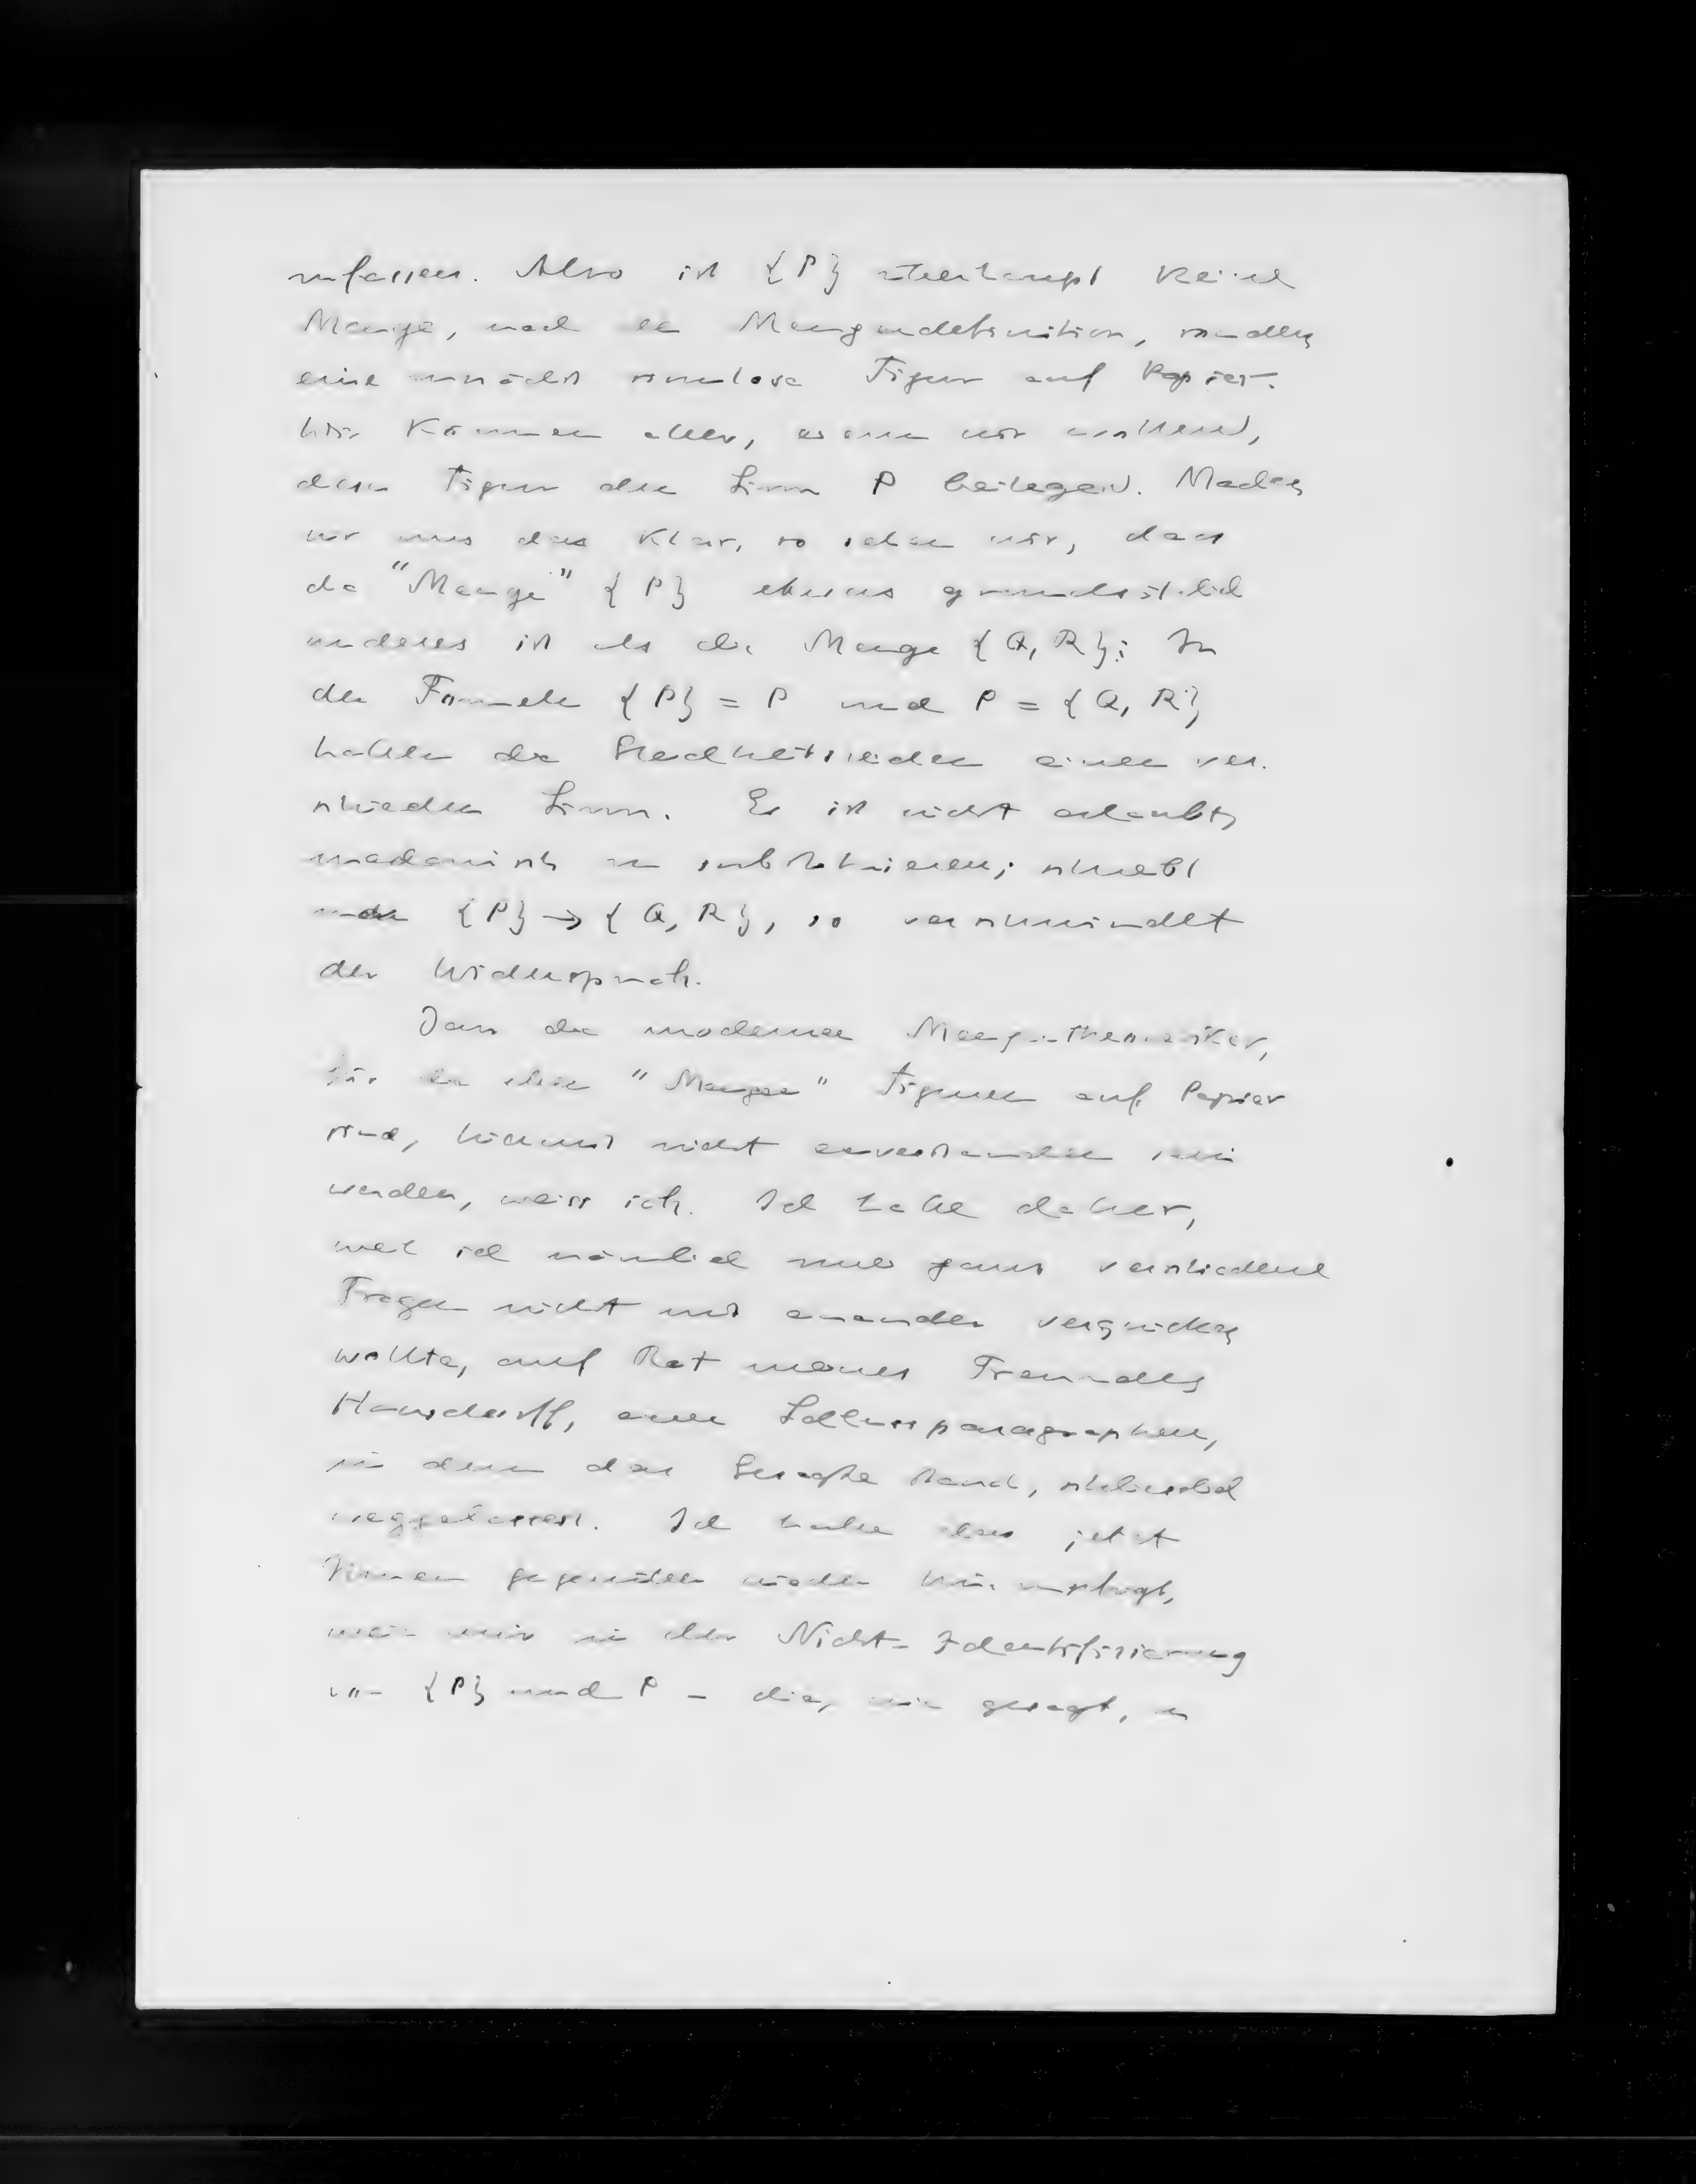 zufassen. Also ist {P} überhaupt keine
Menge, nach der Mengendefinition, sondern
eine zunächst sinnlose Figur auf Papier.
Wir können aber, wenn wir wollen,
dieser Figur den Sinn P beilegen. Machen
wir uns das klar, so sehen wir, dass
die "Menge" {P} etwas grundsätzlich
anderes ist als die Menge {Q, R}; In
den Formeln {P} = P und P = {Q, R}
haben die Gleichheitszeichen einen ver-
schieden Sinn. Es ist nicht erlaubt,
mechanisch zu substituieren; schreibt
man {P} → {Q, R}, so verschwindet
der Widerspruch.
Dass die modernen Mengentheoretiker,
für die eben "Mengen" Figuren auf Papier
sind, hiermit nicht einverstanden sein
werden, weiss ich. Ich habe daher,
weil ich nämlich zwei ganz verschiedene
Fragen nicht mit einander verquicken
wollte, auf Rat meines Freundes
Hausdorff, einen Schlussparagraphen,
in dem das Gesagte stand, schliesslich
weggelassen. Ich habe das jetzt
Ihnen gegenüber wieder hinzugefügt,
weil mir in der Nicht-Identifizierung
von {P} und P - die, wie gesagt, in